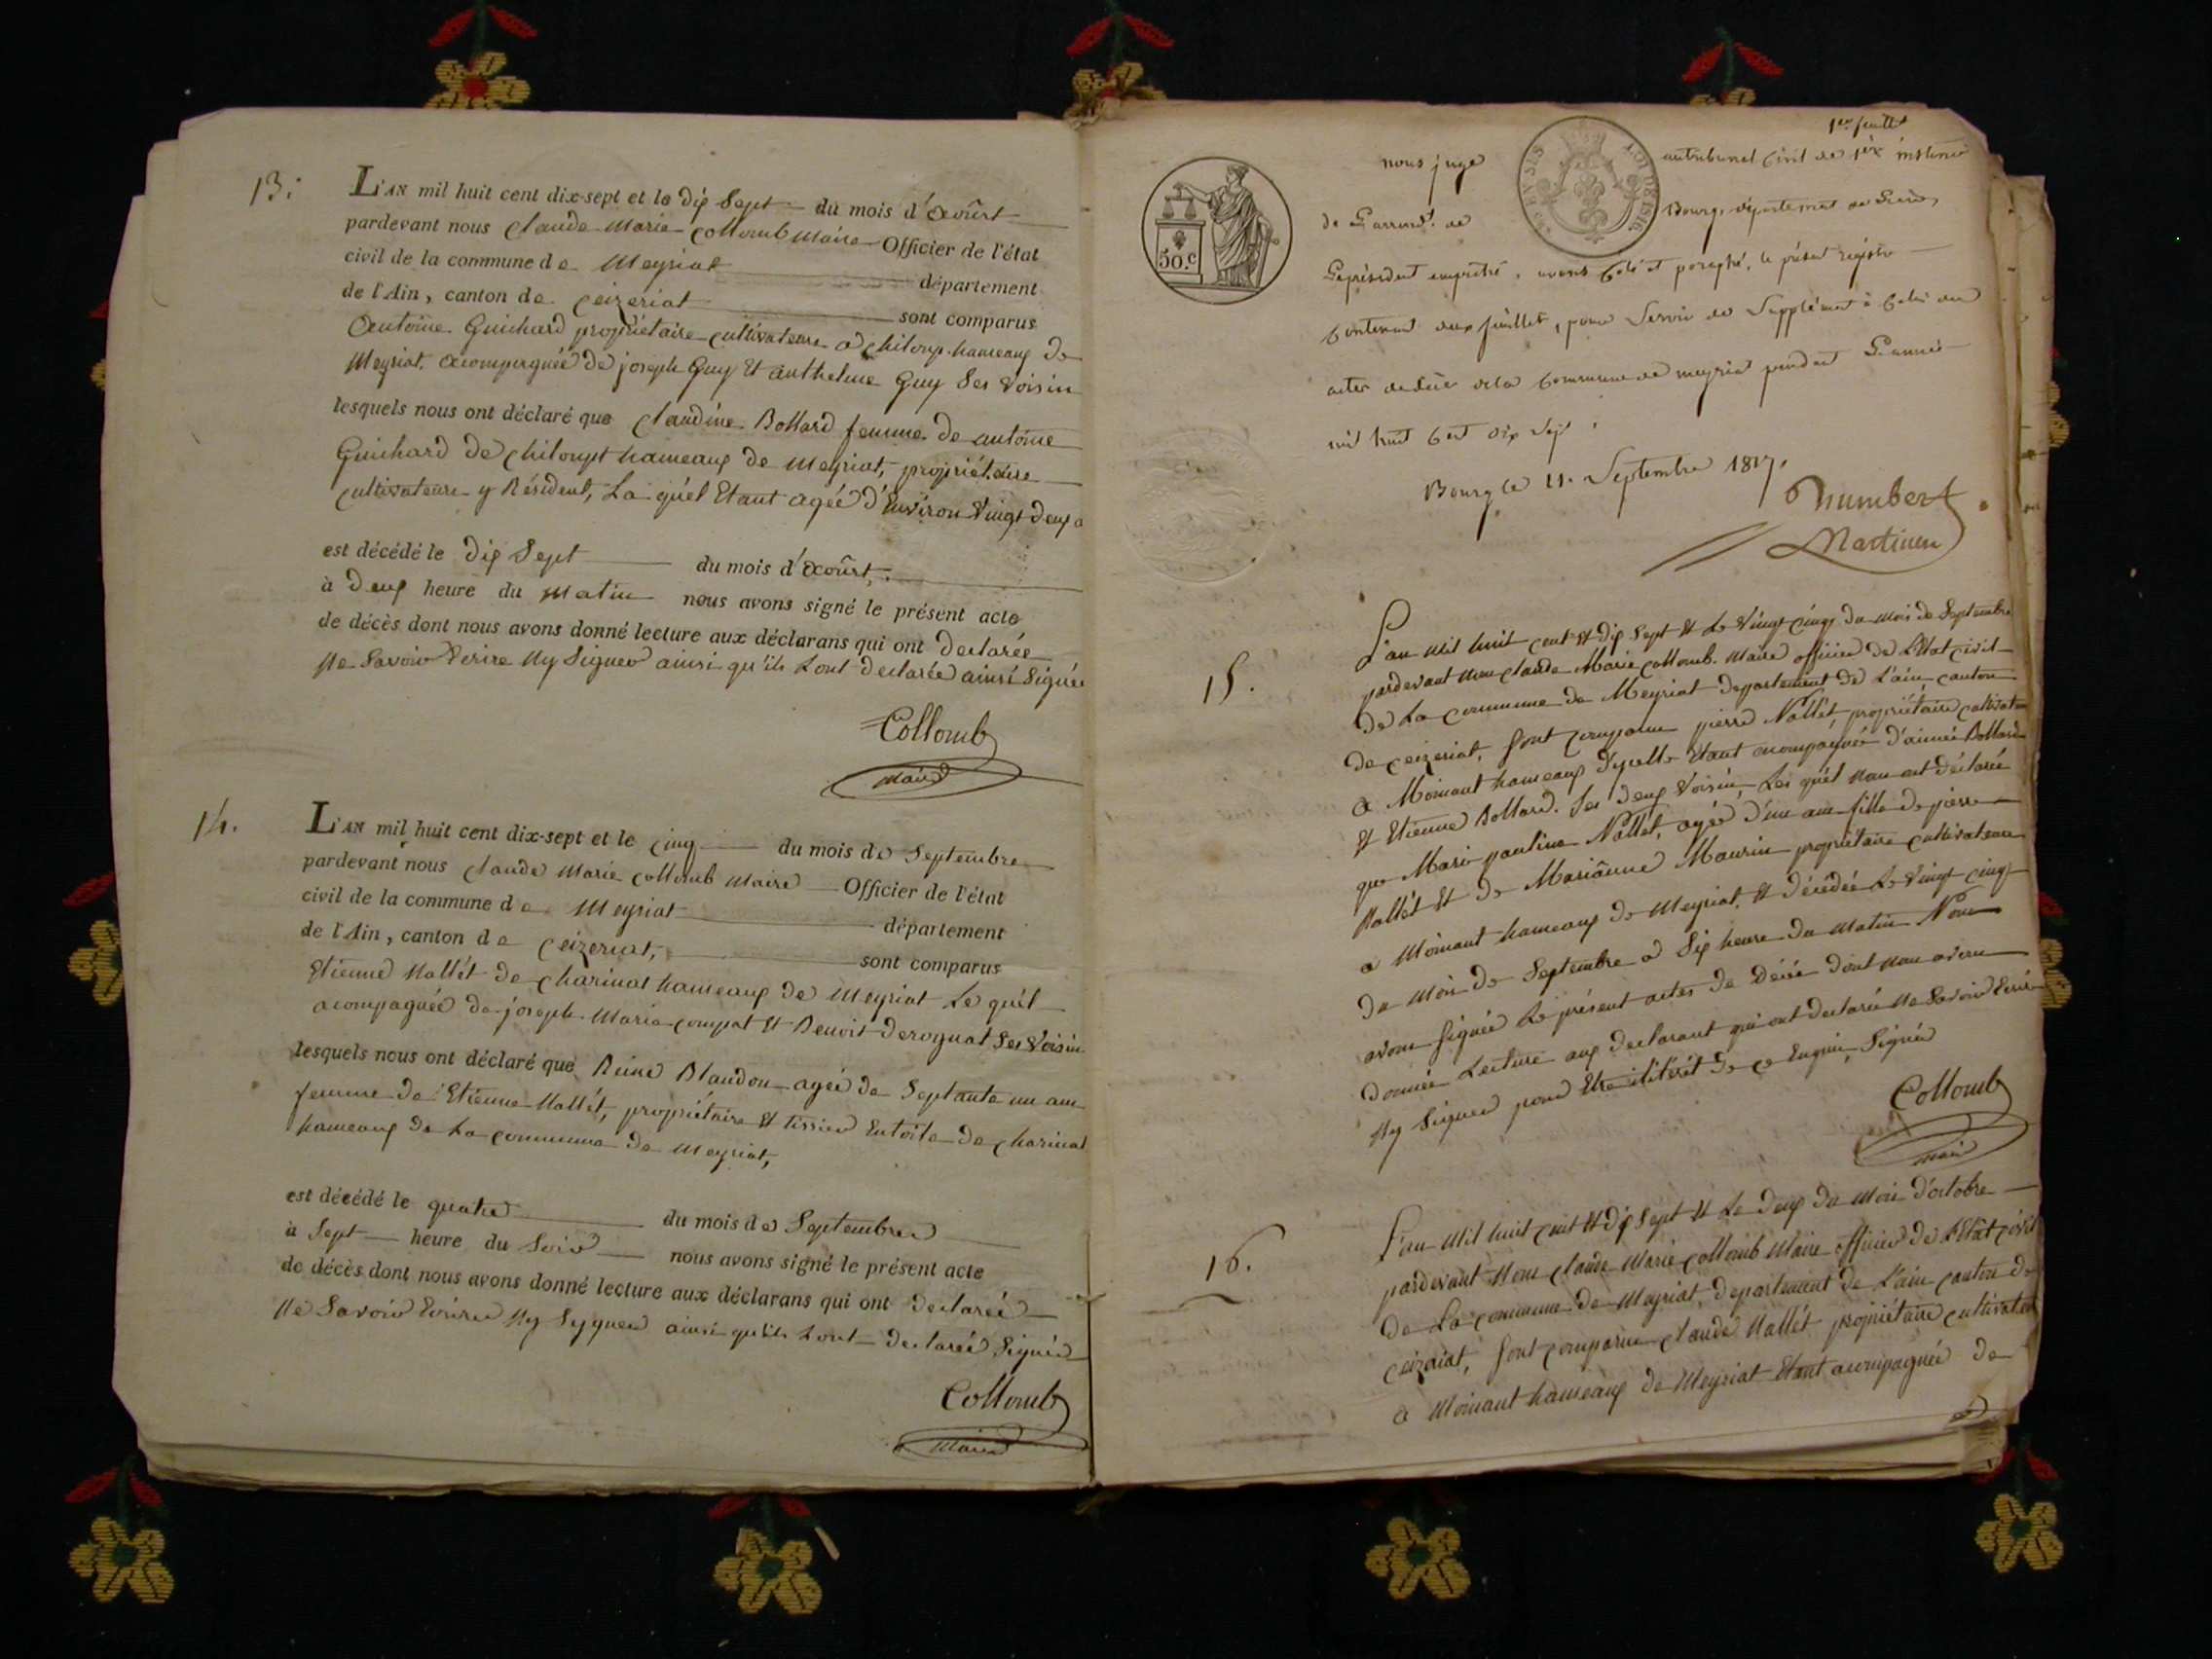 13.
L'AN mil huit cent dix-sept et le dix Sept du mois d'aoûst
pardevant nous Claude Marie Collomb Maire Officier de l'état
civil de la commune de Meyriat département
de l'Ain, canton de Ceizeriat sont comparus
Antoine Guichard propriétaire cultivateure a Chiloup hameaux de
Meyriat. acompagnée de joseph Guy Et anthelme Guy Ses Voisin
lesquels nous ont déclaré que Claudine Bollard femme de antoine
Guichard de Chiloupt hameaux de Meyriat, propriétaire
cultivateure y Résident, La quel Etant agée d'Environ Vingt deux a
est décédé le dix Sept du mois d'aoûst,
à deux heure du Matin nous avons signé le présent acte
de décès dont nous avons donné lecture aux déclarans qui ont declarée
Ne Savoir Ecrire Ny Signer ainsi qu'ils Lont declarée ainsi Signée
Collomb
Maire
14.
L'AN mil huit cent dix-sept et le cinq du mois de Septembre
pardevant nous Claude Marie Collomb Maire Officier de l'état
civil de la commune de Meyriat département
de l'Ain, canton de Ceizeriat, sont comparus
Etienne Nallét de Charinat hameaux de Meyriat Le quél
acompagnée de joseph Marie compat Et Benoit derognat Ses Voisin
lesquels nous ont déclaré que Reine Blandon agée de Septante un ans
femme de Etienne Nallét, propriétaire Et tissier Entoile de Charinat
hameaux de La commune de Meyriat,
est décédé le quatre du mois de Septembre
à Sept heure du Soir nous avons signé le présent acte
de décès dont nous avons donné lecture aux déclarans qui ont declarée
Ne Savoir Ecrire Ny Sygner ainsi qu'ils Lont declarée Signée
Collomb
Maire
1er feuillet
nous juge au tribunal Civil de 1ère instance
de L'arrond.t de Bourg, département de L'ain,
Le président empeché, avons coté et paraphé, le présent régistre
Contenant deux feuillets, pour Servir de Supplément à Celui des
actes de décès de la Commune de meyriat pendant L'année
mil huit Cent dix Sept.
Bourg le 11. Septembre 1817.
50.C
LOI DE 1816
Martinen
15.
L'an Mil huit cent Et dix Sept Et Le Vingt cinq du mois de Septembre
pardevant nous Claude Marie Collomb. Maire officier de L'Etat civil
de La commune de Meyriat departement de L'ain, canton
de Ceizeriat, Sont comparue pierre Nallét, propriétaire cultivateur
a Moinant hameaux d'ycelle Etant acompagnée d'aimée Bollard
Et Etienne Bollard. Ses deux Voisin, Les quél Nous ont déclarée
que Marie pauline Nallét, agée d'un ans fille de pierre
Nallét Et de Mariânne Maurin propriétaire cultivateure
a Moinant hameaux de Meyriat, Et décédée Le Vingt cinq
du Mois de Septembre a Six heure du Matin Nous
avons Signée Le présent actes de Décé dont Nous avons
donnée Lecture aux declarant qui ont declarée Ne Savoir Ecrire
Ny Signer pour Etre ilitérét de ce Enquis, Signée
Collomb
Maire
16.
L'an Mil huit cent Et dix Sept Et Le Deux du Mois d'octobre
pardevant Nous Claude Marie Collomb Maire officier de L'Etat civil
de La commune de Meyriat, departement de L'ain canton de
Ceizeriat, Sont comparue Claude Nallét propriétaire cultivateur
a Moinant hameaux de Meyriat Etant acompagnée de